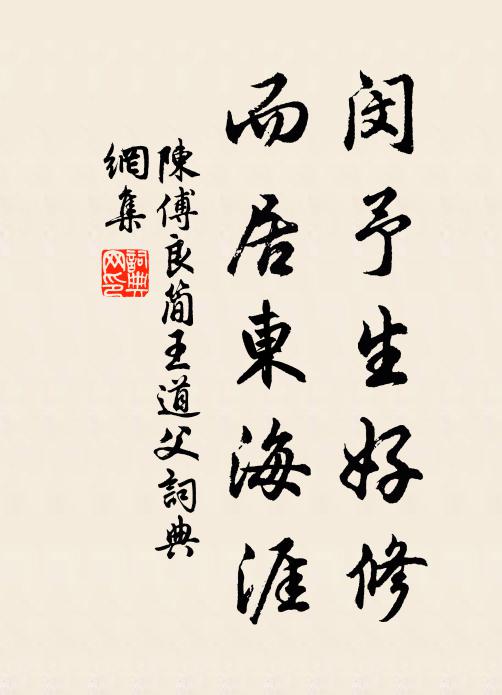 闵予生好修
而居東海涯
陳傅良简王道父詞典
網集
詞典网印